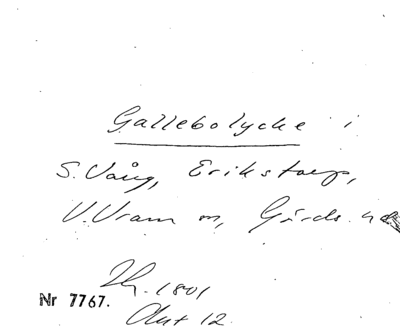 Gallebolycke i
S. Vång, Erikstorp,
V. Vram m, Gärds h
1801
Nr 7767.
Akt 12.